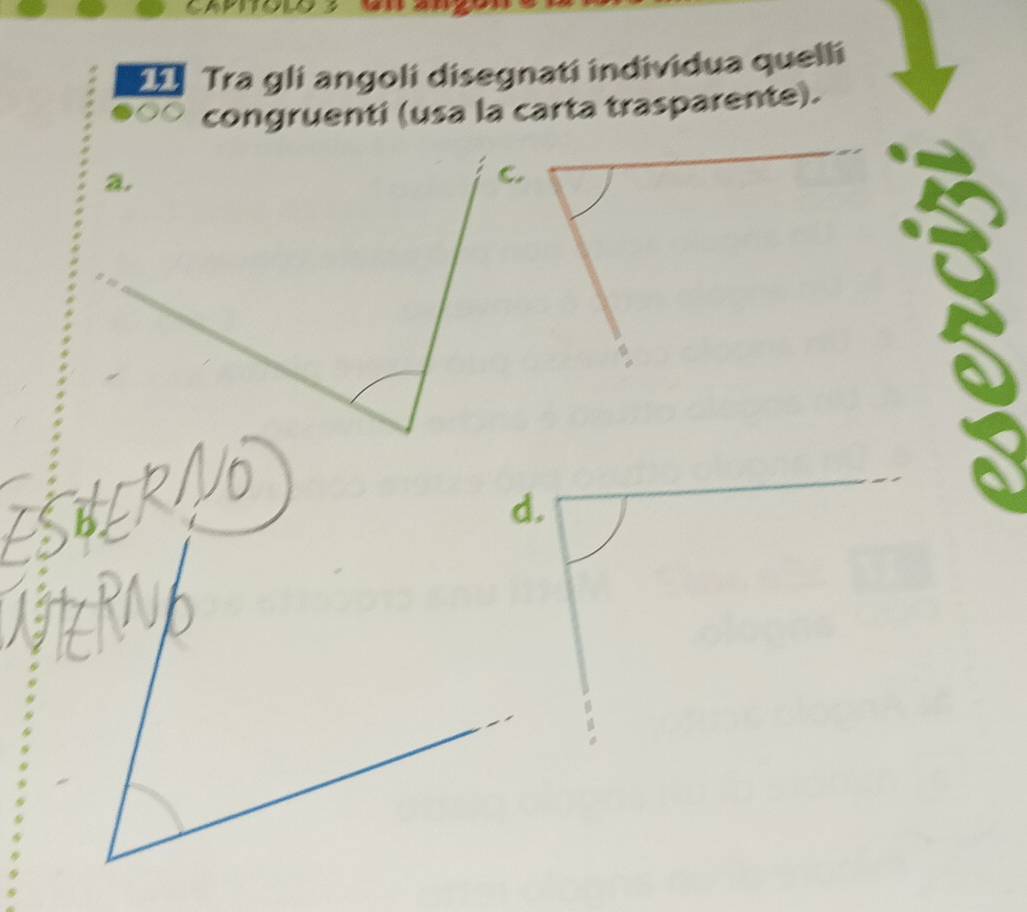 CAPITOLO 3 Un angol
11 Tra gli angoli disegnati individua quelli
congruenti (usa la carta trasparente).
a.
c.
ESTERNO
b.
INTERNO
d.
esercizi